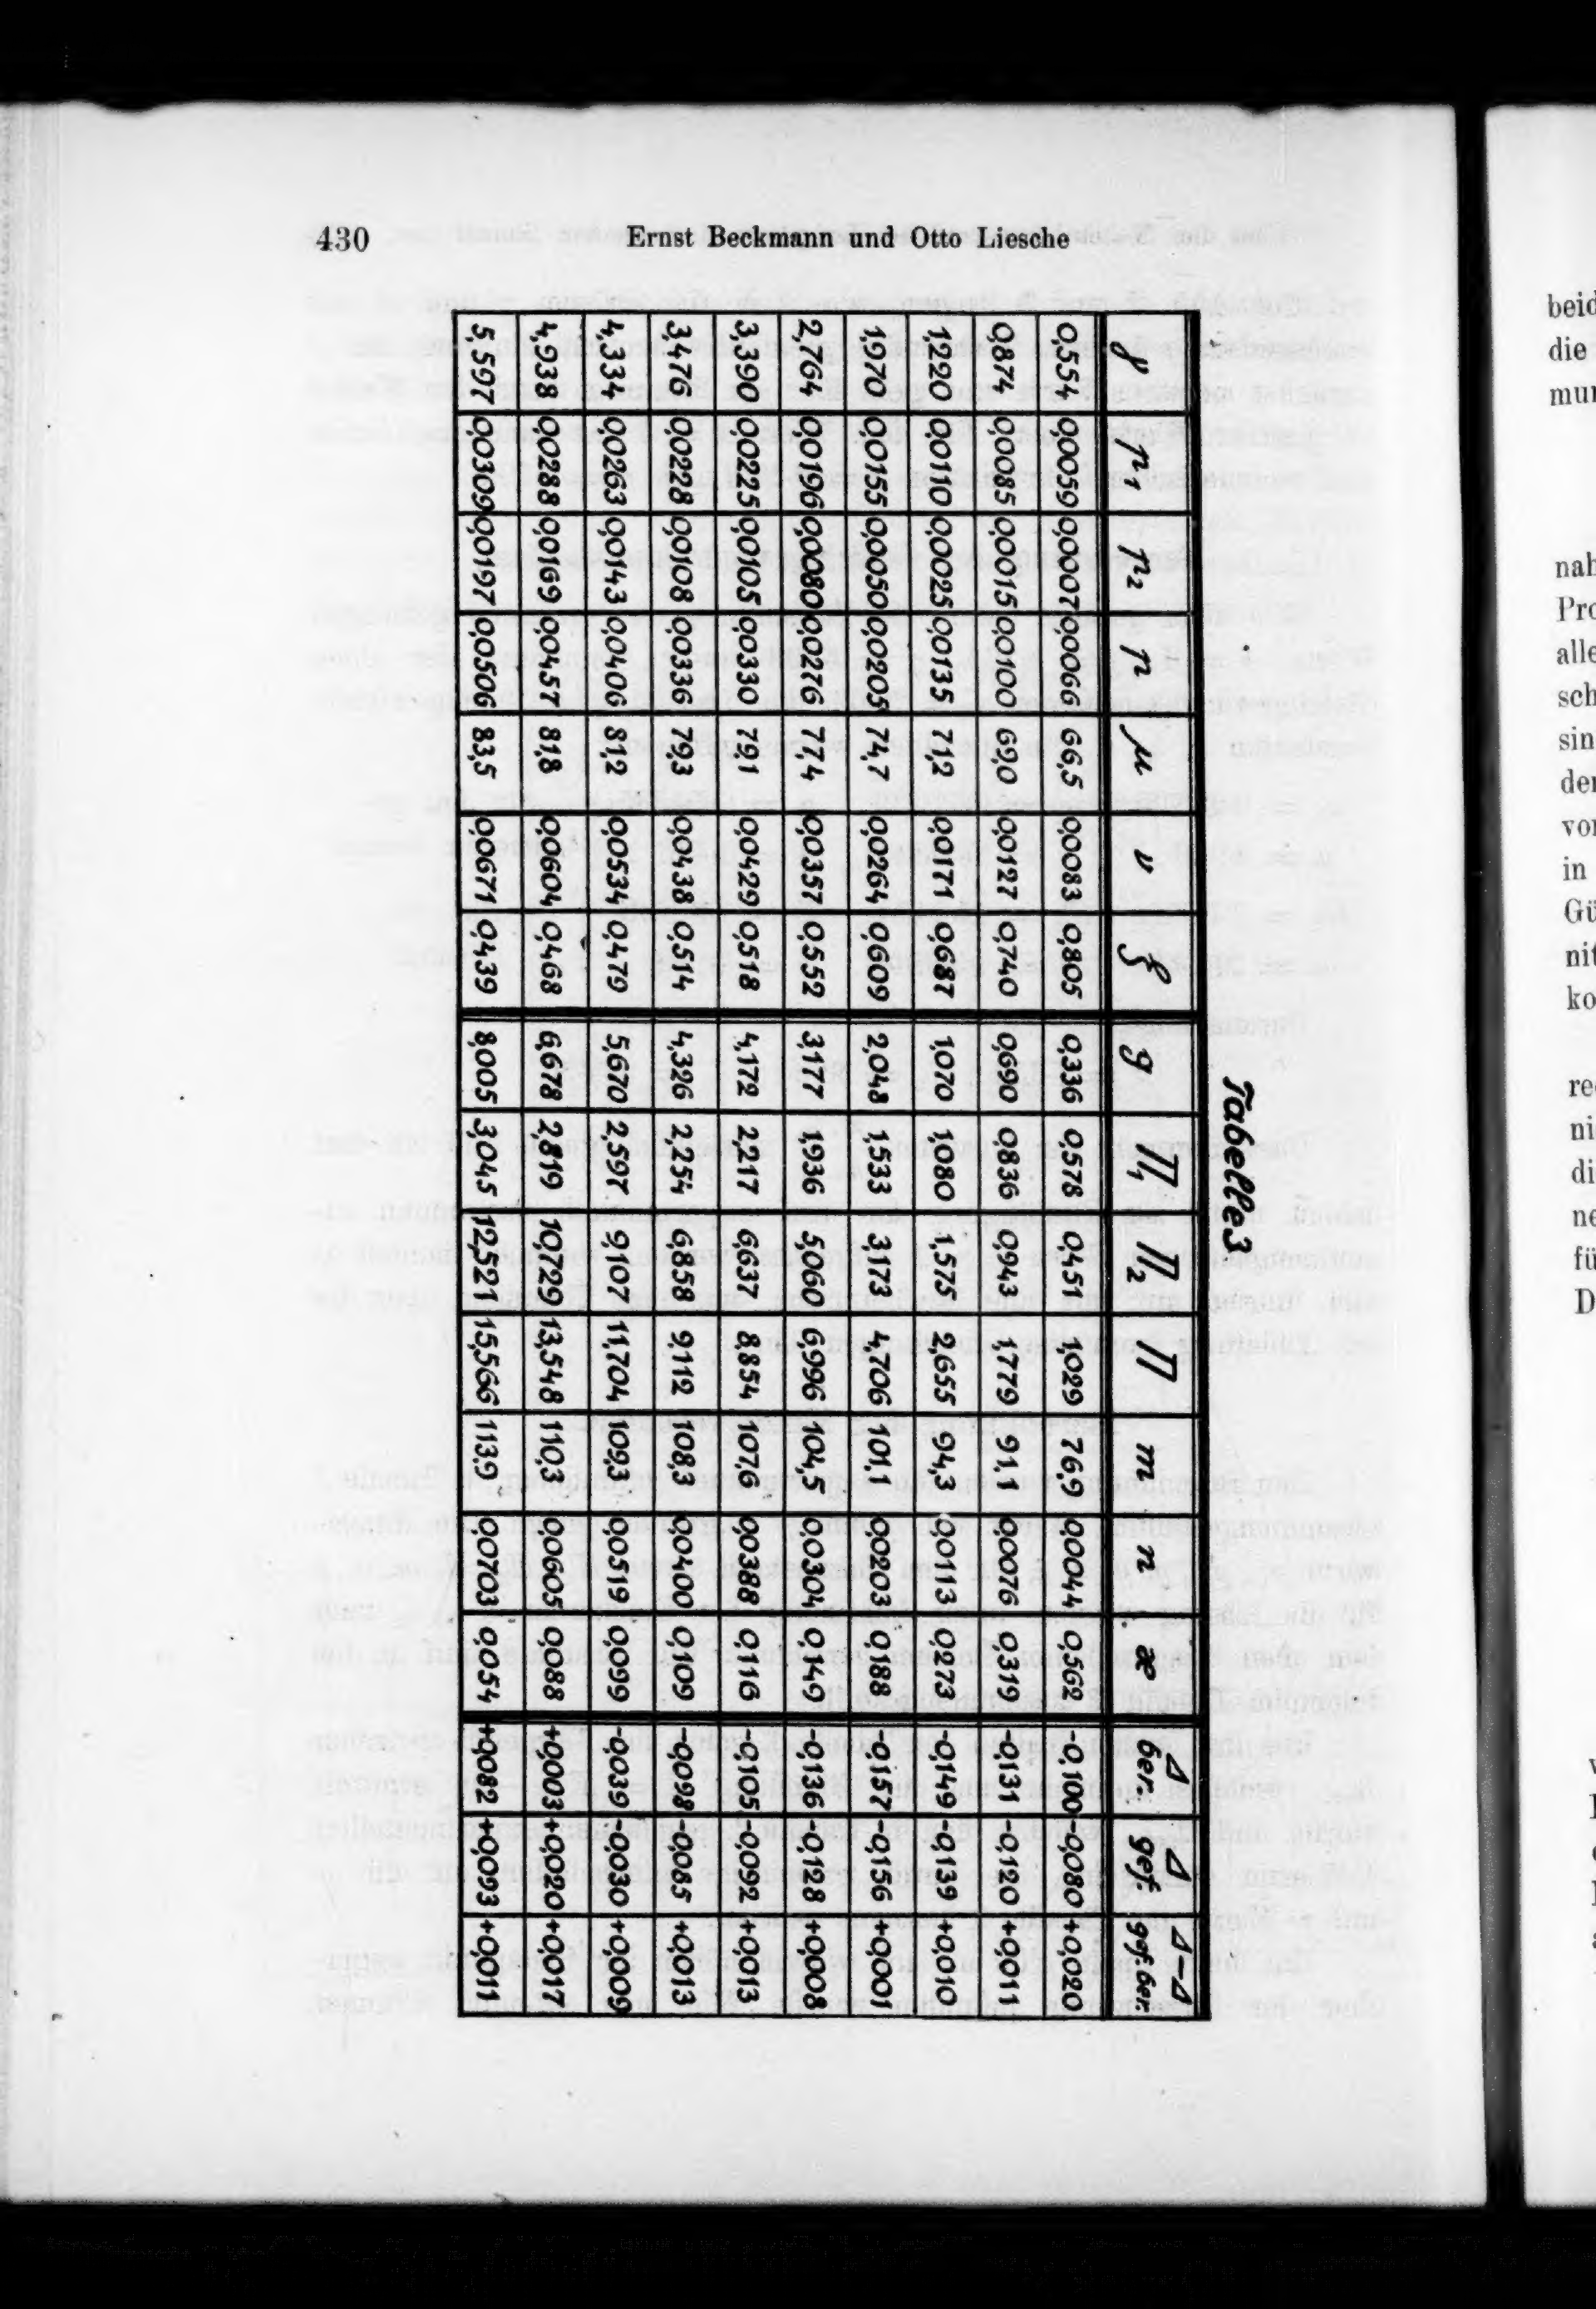 430 Ernst Beckmann und Otto Liesche
Tabelle 3
γ p₁ p₂ p μ ν ξ g Π₁ Π₂ Π m n æ Δ ber. Δ gef. Δ-Δ gef. ber.
0,554 0,00059 0,00007 0,00066 66,5 0,00083 0,805 0,336 0,578 0,451 1,029 76,9 0,00044 0,562 -0,100 -0,080 +0,020
0,874 0,00085 0,00015 0,00100 69,0 0,00127 0,740 0,690 0,836 0,943 1,779 91,1 0,00076 0,319 -0,131 -0,120 +0,011
1,220 0,00110 0,00025 0,00135 71,2 0,00171 0,687 1,070 1,080 1,575 2,655 94,3 0,00113 0,273 -0,149 -0,139 +0,010
1,970 0,00155 0,00050 0,00205 74,7 0,00264 0,609 2,048 1,533 3,173 4,706 101,1 0,00203 0,188 -0,157 -0,156 +0,001
2,764 0,00196 0,00080 0,00276 77,4 0,00357 0,552 3,177 1,936 5,060 6,996 104,5 0,00304 0,149 -0,136 -0,128 +0,008
3,390 0,00225 0,00105 0,00330 79,1 0,00429 0,518 4,172 2,217 6,637 8,854 107,6 0,00388 0,116 -0,105 -0,092 +0,013
3,476 0,00228 0,00108 0,00336 79,3 0,00438 0,514 4,326 2,254 6,858 9,112 108,3 0,00400 0,109 -0,098 -0,085 +0,013
4,334 0,00263 0,00143 0,00406 81,2 0,00534 0,479 5,670 2,597 9,107 11,704 109,3 0,00519 0,099 -0,039 -0,030 +0,009
4,938 0,00288 0,00169 0,00457 81,8 0,00604 0,468 6,678 2,819 10,729 13,548 110,3 0,00605 0,088 +0,003 +0,020 +0,017
5,597 0,00309 0,00197 0,00506 83,5 0,00671 0,439 8,005 3,045 12,521 15,566 113,9 0,00703 0,054 +0,082 +0,093 +0,011
beid
die
mun
nah
Pro
alle
sch
sin
der
vor
in
Gü
nit
ko
re
ni
di
ne
fü
D